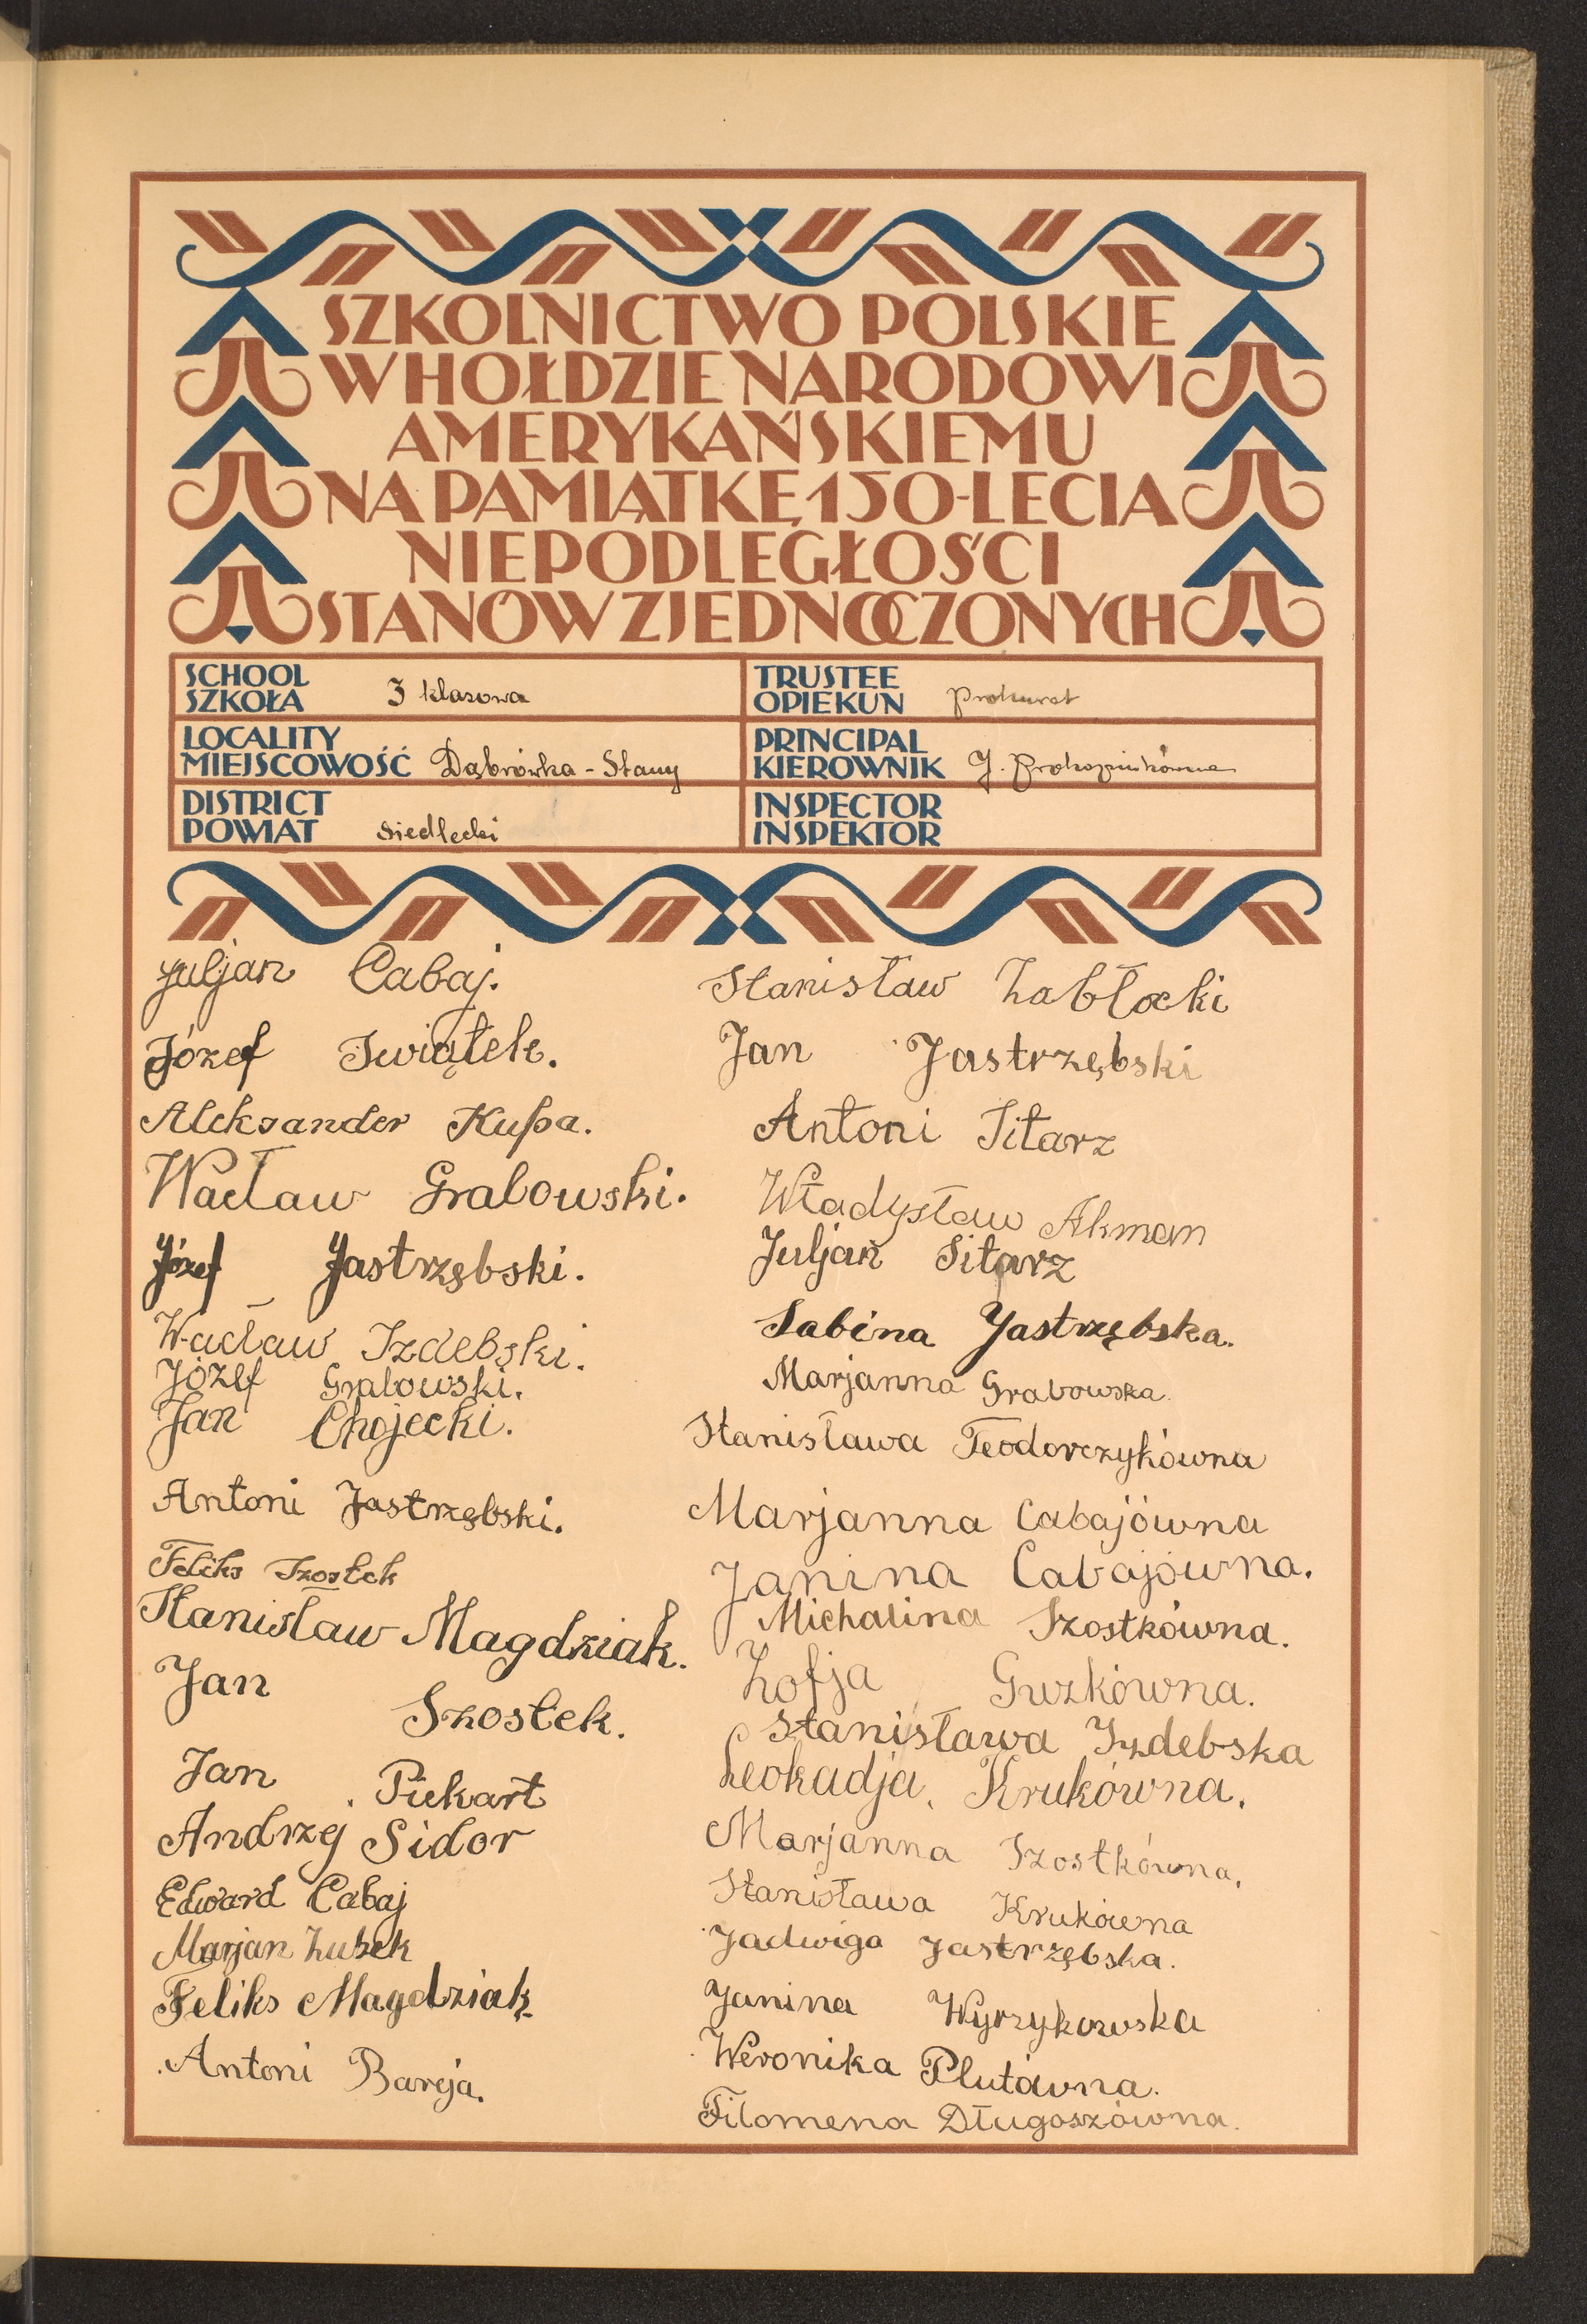 SZKOLNICTWO POLSKIE
W HOŁDZIE NARODOWI
AMERYKAŃSKIEMU
NA PAMIĄTKĘ 150-LECIA
NIEPODLEGŁOŚCI
STANÓW ZJEDNOCZONYCH
SCHOOL
SZKOŁA 3 klasowa
TRUSTEE
OPIEKUN Prokurat
LOCALITY
MIEJSCOWOŚĆ Dąbrówka - Stany
PRINCIPAL
KIEROWNIK J.
DISTRICT
POWIAT Siedlecki
INSPECTOR
INSPEKTOR
Juljan Cabaj.
Józef Swiątek.
Aleksander Kupa.
Wacław Grabowski.
Józef Jastrzębski.
Wacław Izdebski.
Józef Grabowski.
Jan Chojecki.
Antoni Jastrzębski.
Feliks Szostek
Stanisław Magdziak.
Jan Szostek.
Jan Piekart
Andrzej Sidor
Edward Cabaj
Marjan Zubek
Feliks Magdziak
Antoni Bareja.
Stanisław Zabłocki
Jan Jastrzębski
Antoni Sitarz
Władysław Akman
Juljan Sitarz
Sabina Jastrzębska.
Marjanna Grabowska.
Stanisława Teodorczykówna
Marjanna Cabajówna
Janina Cabajówna.
Michalina Szostkówna.
Zofja Guzkówna.
Stanisława Izdebska
Leokadja Krukówna.
Marjanna Szostkówna.
Stanisława Krukówna
Jadwiga Jastrzębska.
Janina Wyrzykowska
Weronika Plutówna.
Filomena Długoszówna.